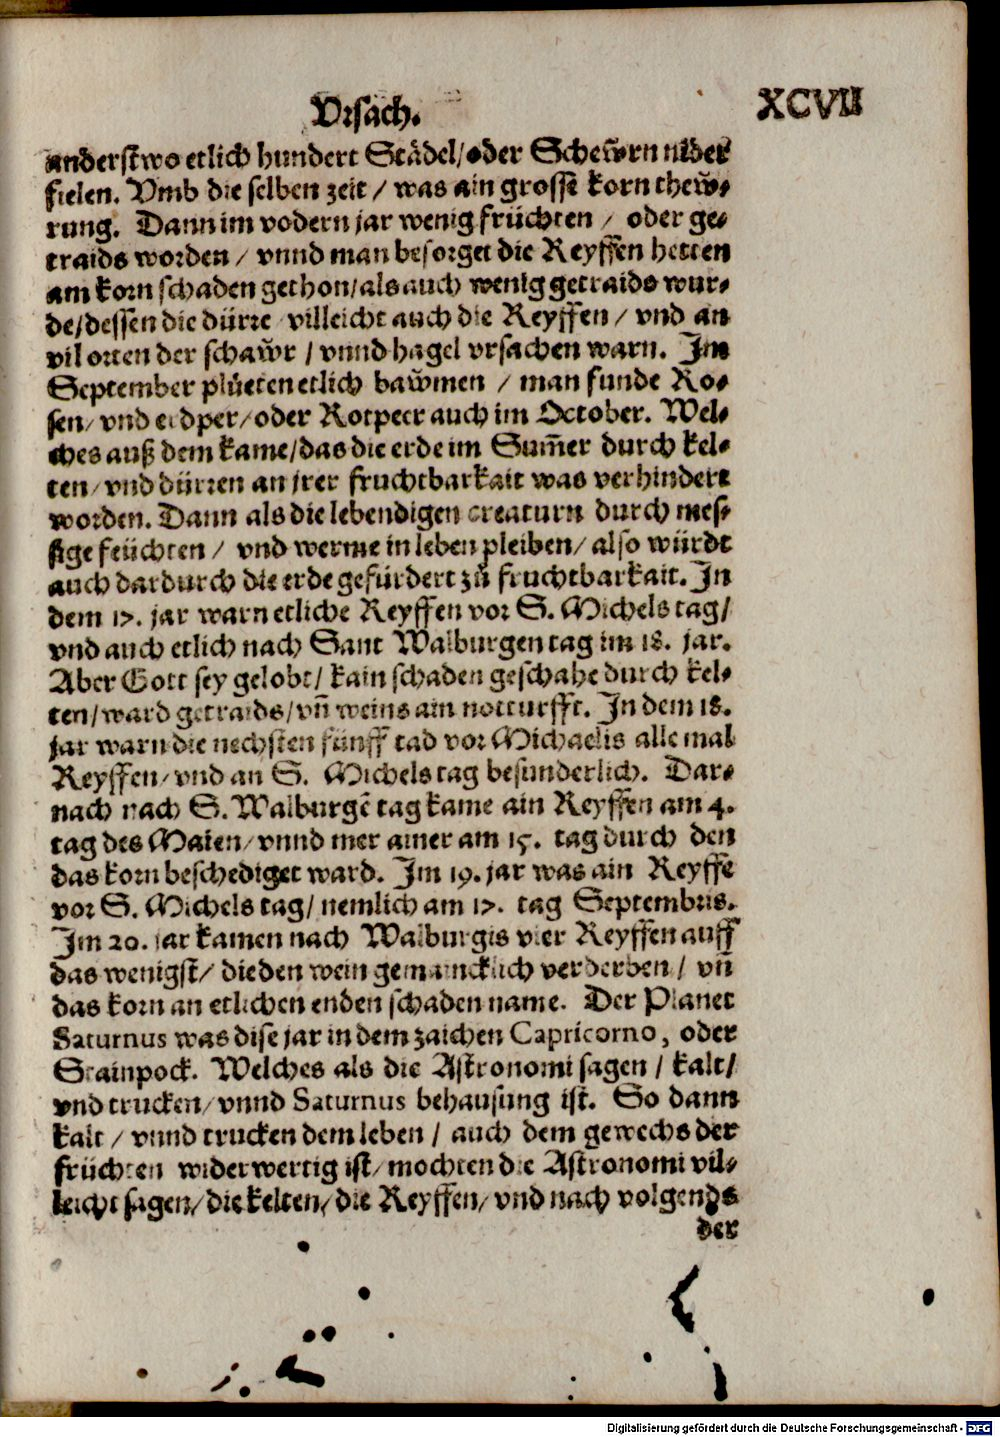 Vrsach. XCVII
anderstwo etlich hundert Städel/oder Schew̆rn nider
fielen. Vmb die selben zeit / was ain grosse korn thew̆-
rung. Dann im vodern jar wenig früchten / oder ge-
traids worden / vnnd man besorget die Reyffen hetten
am korn schaden gethon/als auch wenig getraids wur-
de/dessen die dürre villeicht auch die Reyffen / vnd an
vil orten der schaw̆r / vnnd hagel vrsachen warn. Im
September plüeten etlich baw̆men / man funde Ro-
sen/ vnd erdper/oder Rotpeer auch im October. Wel-
ches auß dem kame/das die erde im Sum̃er durch kel-
ten/vnd dürren an jrer fruchtbarkait was verhindert
worden. Dann als die lebendigen creaturn durch mes-
sige feüchten / vnd werme in leben pleiben/ also würdt
auch dardurch die erde gefürdert zů fruchtbarkait. In
dem 17. jar warn etliche Reyffen vor S. Michels tag/
vnd auch etlich nach Sant Walburgen tag im 18. jar.
Aber Gott sey gelobt/ kain schaden geschahe durch kel-
ten/ward getraids/vñ weins ain notturfft. In dem 18.
jar warn die nechsten fünff tad vor Michaelis alle mal
Reyffen/vnd an S. Michels tag besunderlich. Dar-
nach nach S. Walburgẽ tag kame ain Reyffen am 4.
tag des Maien/vnnd mer ainer am 15. tag durch den
das korn beschediget ward. Im 19. jar was ain Reyffe
vor S. Michels tag/ nemlich am 17. tag Septembris.
Im 20. jar kamen nach Walburgis vier Reyffen auff
das wenigst/ die den wein gemaincklich verderben / vñ
das korn an etlichen enden schaden name. Der Planet
Saturnus was dise jar in dem zaichen Capricorno, oder
Stainpock. Welches als die Astronomi sagen / kalt/
vnd trucken/vnnd Saturnus behausung ist. So dann
kalt / vnnd trucken dem leben / auch dem gewechs der
früchten widerwertig ist/mochten die Astronomi vil-
leicht sagen/die kelten/die Reyffen/vnd nach volgends
der
Digitalisierung gefördert durch die Deutsche Forschungsgemeinschaft - DFG